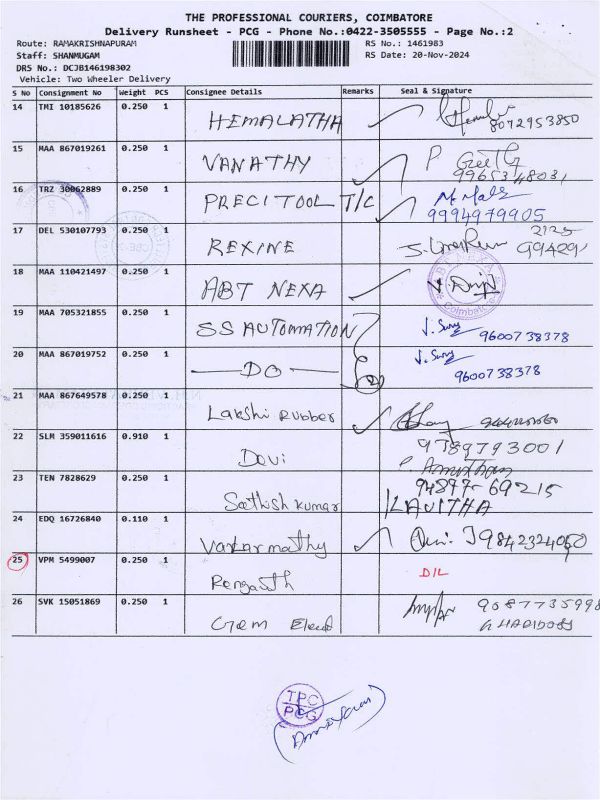 THE PROFESSIONAL COURIERS, COIMBATORE
Delivery Runsheet - PCG - Phone No.:0422-3505555 - Page No.:2
Route: RAMAKRISHNAPURAM
RS No.: 1461983
Staff: SHANMUGAM
RS Date: 20-Nov-2024
DRS No.: DCJB146198302
Vehicle: Two Wheeler Delivery
S No Consignment No Weight PCS Consignee Details Remarks Seal & Signature
14 TMI 10185626 0.250 1 HEMALATHA 8072953850
15 MAA 867019261 0.250 1 VANATHY P
9965348031
16 TRZ 30062889 0.250 1 PRECITOOL T/C
9994979905
17 DEL 530107793 0.250 1 REXINE 2125
99429
18 MAA 110421497 0.250 1 ABT NEXA
Coimbatore
19 MAA 705321855 0.250 1 SS AUTOMATION 9600738378
20 MAA 867019752 0.250 1 DO 2 9600738378
21 MAA 867649578 0.250 1 Lakshi Rubber
22 SLM 359011616 0.910 1 Devi 9789793001
23 TEN 7828629 0.250 1 Sathish kumar 94877-69215
KAVITHA
24 EDQ 16726840 0.110 1 9842324050
25 VPM 5499007 0.250 1 D/L
26 SVK 15051869 0.250 1 Gem 9087735998
G HARIDOSS
TPC
PCG